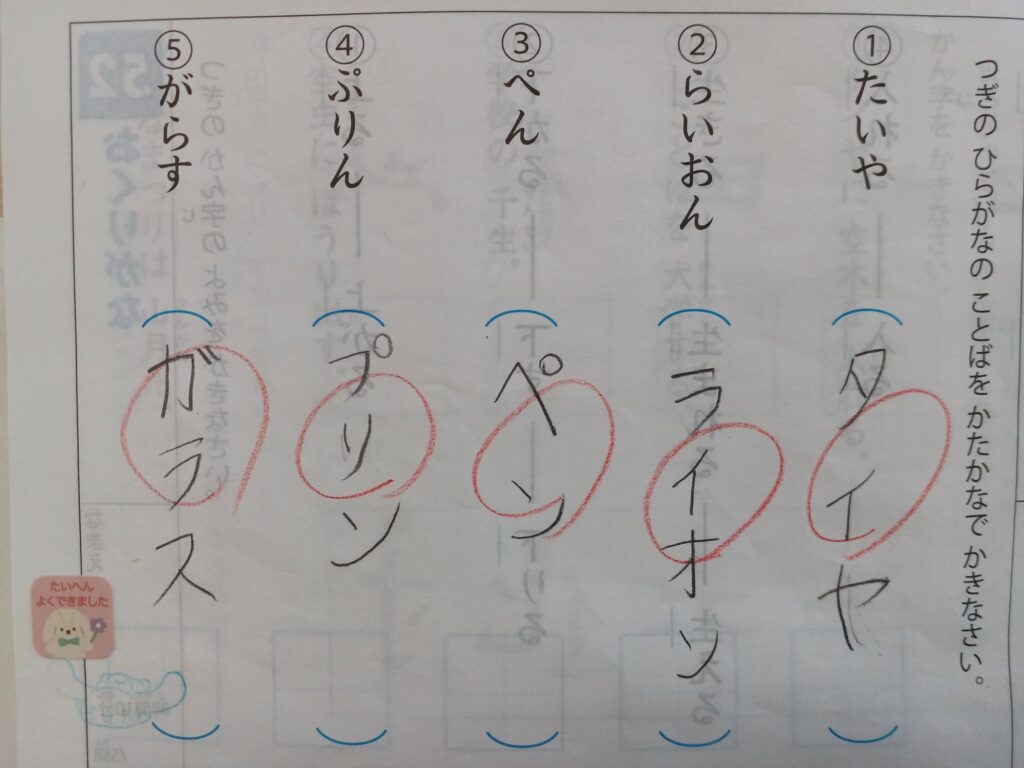 つぎの ひらがなの ことばを かたかなで かきなさい。
①たいや
(タイヤ)
②らいおん
(ライオン)
③ぺん
(ペン)
④ぷりん
(プリン)
⑤がらす
(ガラス)
たいへん
よくできました